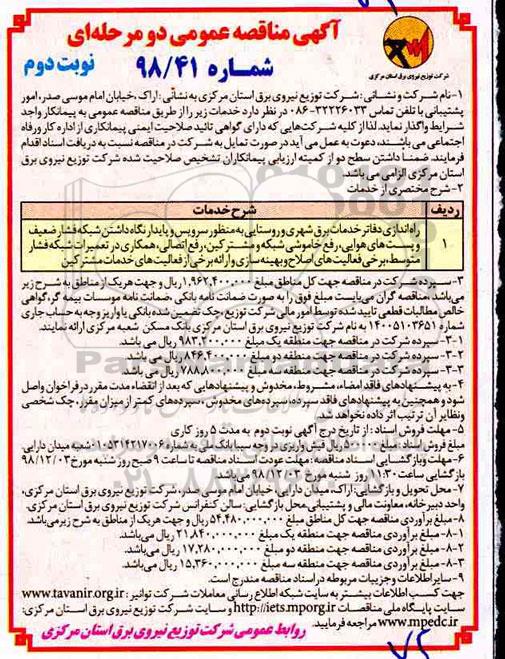 آگهی مناقصه عمومی دو مرحله‌ای
شماره ۹۸/۴۱
نوبت دوم
شرکت توزیع نیروی برق استان مرکزی
۱-نام شرکت و نشانی : شرکت توزیع نیروی برق استان مرکزی به نشانی : اراک، خیابان امام موسی صدر، امور
پشتیبانی با تلفن تماس ۳۲۲۲۶۰۳۳-۰۸۶ در نظر دارد خدمات زیر را از طریق مناقصه عمومی به پیمانکار واجد
شرایط واگذار نماید. لذا از کلیه شرکت‌هایی که دارای گواهی تائید صلاحیت ایمنی پیمانکاری از اداره کار و رفاه
اجتماعی می باشند، دعوت به عمل می آید در صورت تمایل به شرکت در مناقصه نسبت به دریافت اسناد اقدام
فرمایند. ضمنا داشتن سطح دو از کمیته ارزیابی پیمانکاران تشخیص صلاحیت شده شرکت توزیع نیروی برق
استان مرکزی الزامی می باشد.
۲-شرح مختصری از خدمات
ردیف شرح خدمات
۱ راه اندازی دفاتر خدمات برق شهری و روستایی به منظور سرویس و پایدار نگاه داشتن شبکه فشار ضعیف
و پست های هوایی، رفع خاموشی شبکه و مشترکین، رفع اتصالی، همکاری در تعمیرات شبکه فشار
متوسط، برخی فعالیت های اصلاح و بهینه سازی و ارائه برخی از فعالیت های خدمات مشترکین
۳- سپرده شرکت در مناقصه جهت کل مناطق مبلغ ۱,۹۶۲,۴۰۰,۰۰۰ ریال و جهت هریک از مناطق به شرح زیر
می باشد. مناقصه گران می بایست مبلغ فوق را به صورت ضمانت نامه بانکی، ضمانت نامه موسسات بیمه گر، گواهی
خالص مطالبات قطعی تایید شده توسط امور مالی شرکت توزیع، چک تضمین شده بانکی یا واریز وجه به حساب جاری
شماره ۱۴۰۰۵۱۰۳۶۵۱ به نام شرکت توزیع نیروی برق استان مرکزی بانک مسکن شعبه مرکزی ارائه نمایند.
۳-۱- سپرده شرکت در مناقصه جهت منطقه یک مبلغ ۹۸۳,۲۰۰,۰۰۰ ریال می باشد.
۳-۲- سپرده شرکت در مناقصه جهت منطقه دو مبلغ ۸۴۶,۴۰۰,۰۰۰ ریال می باشد.
۳-۳- سپرده شرکت در مناقصه جهت منطقه سه مبلغ ۷۸۸,۸۰۰,۰۰۰ ریال می باشد.
۴- به پیشنهادهای فاقد امضاء، مشروط، مخدوش و پیشنهادهایی که بعد از انقضاء مدت مقرر در فراخوان واصل
شود و همچنین به پیشنهادهای فاقد سپرده، سپرده های مخدوش، سپرده های کمتر از میزان مقرر، چک شخصی
و نظایر آن ترتیب اثر داده نخواهد شد.
۵- مهلت فروش اسناد : از تاریخ درج آگهی نوبت دوم به مدت ۵ روز کاری
مبلغ فروش اسناد : مبلغ ریال فیش واریزی در وجه سیبا بانک ملی به شماره ۰۱۰۵۳۱۴۲۱۷۰۰۶ شعبه میدان دارایی
۶- مهلت و بازگشایی اسناد مناقصه : مهلت عودت اسناد مناقصه تا ساعت ۹ صبح روز شنبه مورخ ۹۸/۱۲/۰۳
بازگشایی ساعت ۱۱:۳۰ روز شنبه مورخ ۹۸/۱۲/۰۳ می باشد.
۷- محل تحویل و بازگشایی : اراک، میدان دارایی، خیابان امام موسی صدر، شرکت توزیع نیروی برق استان مرکزی،
واحد دبیرخانه، معاونت مالی و پشتیبانی، محل بازگشایی : سالن کنفرانس شرکت توزیع نیروی برق استان مرکزی.
۸- مبلغ برآوردی مناقصه جهت کل مناطق مبلغ ۵۴,۴۸۰,۰۰۰,۰۰۰ ریال و جهت هریک از مناطق به شرح زیر می باشد.
۸-۱- مبلغ برآوردی مناقصه جهت منطقه یک مبلغ ۲۱,۸۴۰,۰۰۰,۰۰۰ ریال می باشد.
۸-۲- مبلغ برآوردی مناقصه جهت منطقه دو مبلغ ۱۷,۲۸۰,۰۰۰,۰۰۰ ریال می باشد.
۸-۳- مبلغ برآوردی مناقصه جهت منطقه سه مبلغ ۱۵,۳۶۰,۰۰۰,۰۰۰ ریال می باشد.
۹- سایر اطلاعات و جزییات مربوطه در اسناد مناقصه مندرج است.
جهت کسب اطلاعات بیشتر به سایت شبکه اطلاع رسانی معاملات شرکت توانیر : www.tavanir.org.ir
سایت پایگاه ملی مناقصات http://iets.mporg.ir و سایت شرکت توزیع نیروی برق استان مرکزی:
www.mpedc.ir مراجعه فرمایید.
روابط عمومی شرکت توزیع نیروی برق استان مرکزی